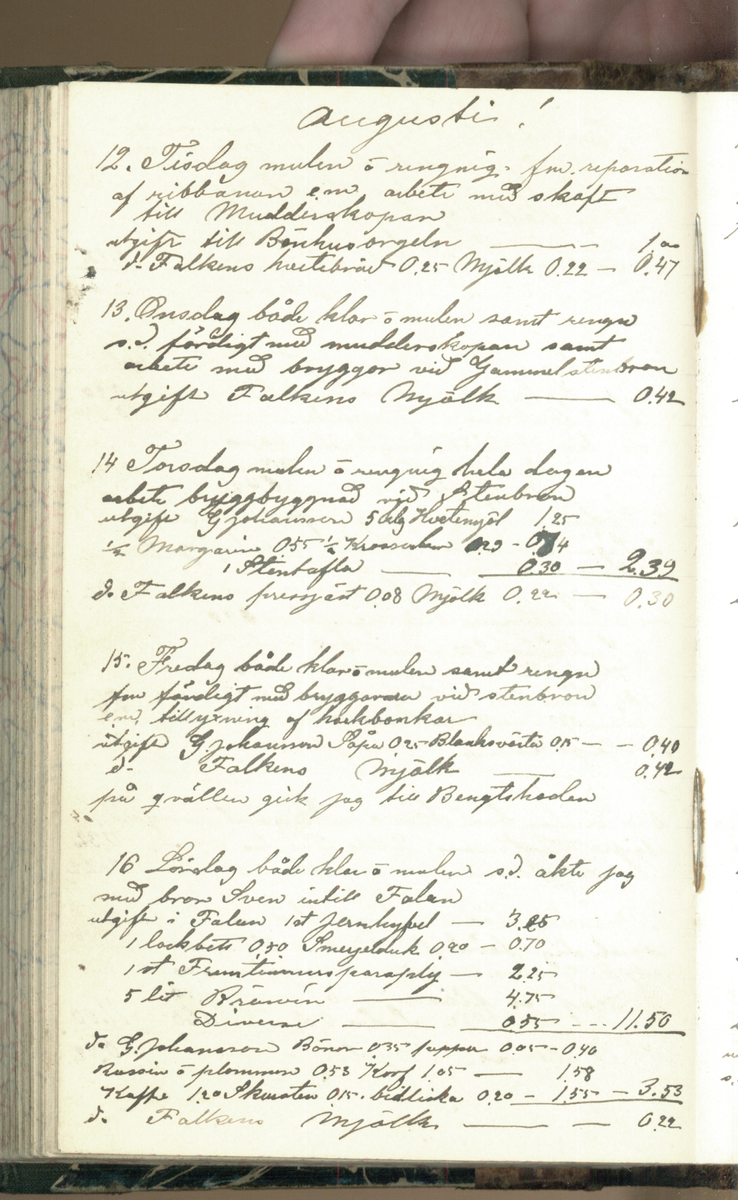 Augusti!
12. Tisdag mulen ō rengnig. fm. reparation
af ribbånan e.m. arbete med skaft
till Mudderskopan
utgift till Bönhusorgeln — 1.00
d:o Falkens hvetebröd 0.25 Mjölk 0.22 — 0.47
13. Onsdag både klar ō mulen samt rengn
s.d. färdigt med mudderskopan samt
arbete med bryggor vid Gammelstenbron
utgift Falkens Mjölk — 0.42
14 Torsdag mulen ō rengnig hela dagen
arbete bryggbyggnad vid Stenbron
utgift G Johansson 5 klg Hvetemjöl 1.25
½ Margarin 0.55 ½ 0.29 - 0.84
1 Stentafla — 0.30 — 2.39
d:o Falkens pressjäst 0.08 Mjölk 0.22 — 0.30
15. Fredag både klar ō mulen samt rengn
fm färdigt med bryggorna vid stenbron
e.m. tillyxning af hackbonkar
utgift G. Johansson Såpa 0.25 Blanksvärta 0.15 — - 0.40
d:o Falkens Mjölk — 0.42
på qvällen gick jag till Bengtsheden
16 Lördag både klar ō mulen s.d. åkte jag
med bron Sven intill Falun
utgift i Falun 1 st Jernhyfvel — 3.25
1 lockbets 0.50 Smergelduk 0.20 - 0.70
1 st Fruntimmersparaply — 2.25
5 lit Brävin — 4.75
Diverse — 0.55 --- 11.50
d:o G. Johansson Bönor 0.35 peppar 0.05 - 0.40
Russin ō plommon 0.53 Korf 1.05 — 1.58
Kaffe 1.20 Skursten 0.15. 0.20 - 1.55 - 3.53
d:o Falkens Mjölk — — 0.22